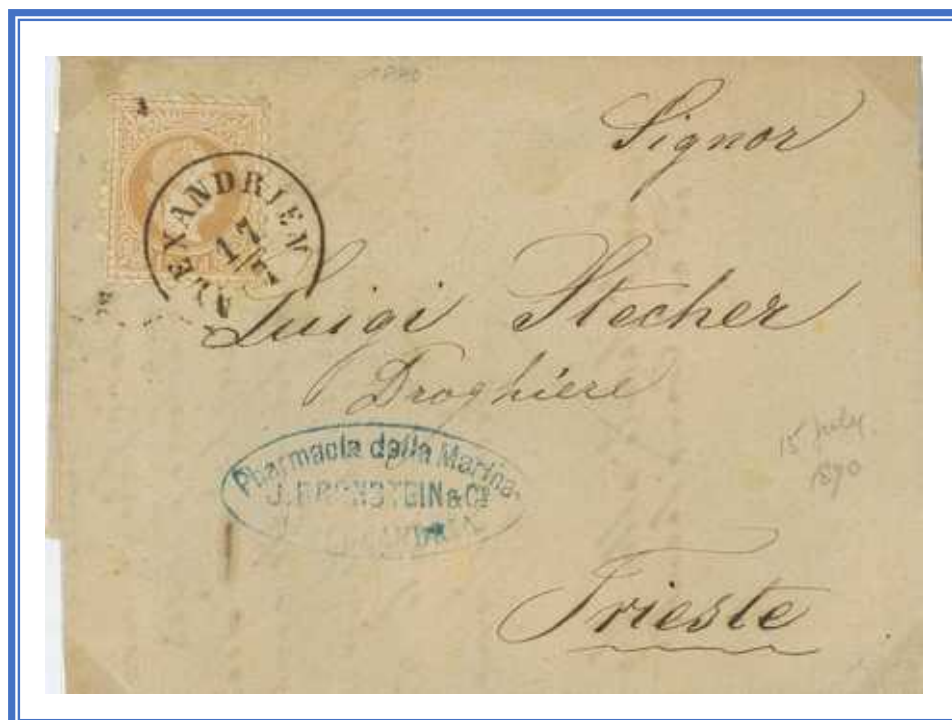 Signor
ALEXANDRIEN
17
Luigi Stecher
Droghiere
Pharmacia della Marina
J. BRONSTEIN & Cº
15 july
1870
Trieste